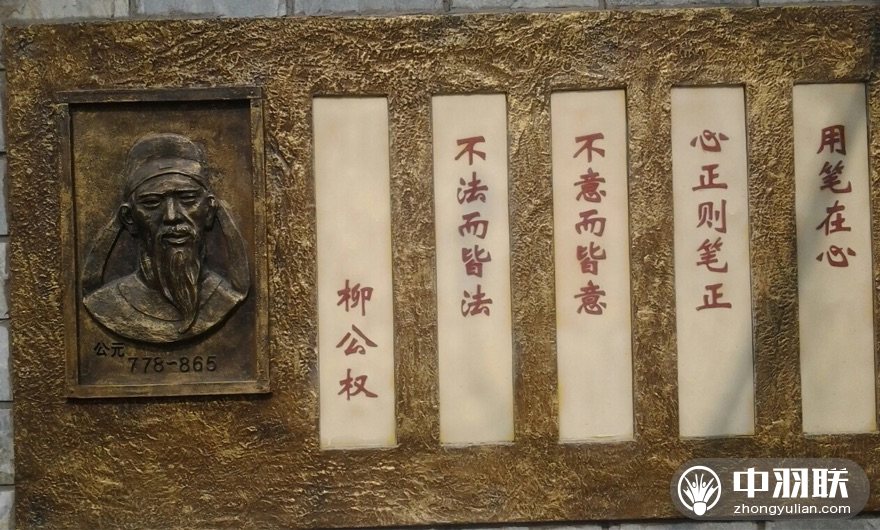 用笔在心
心正则笔正
不意而皆意
不法而皆法
柳公权
公元
778-865
中羽联
zhongyulian.com